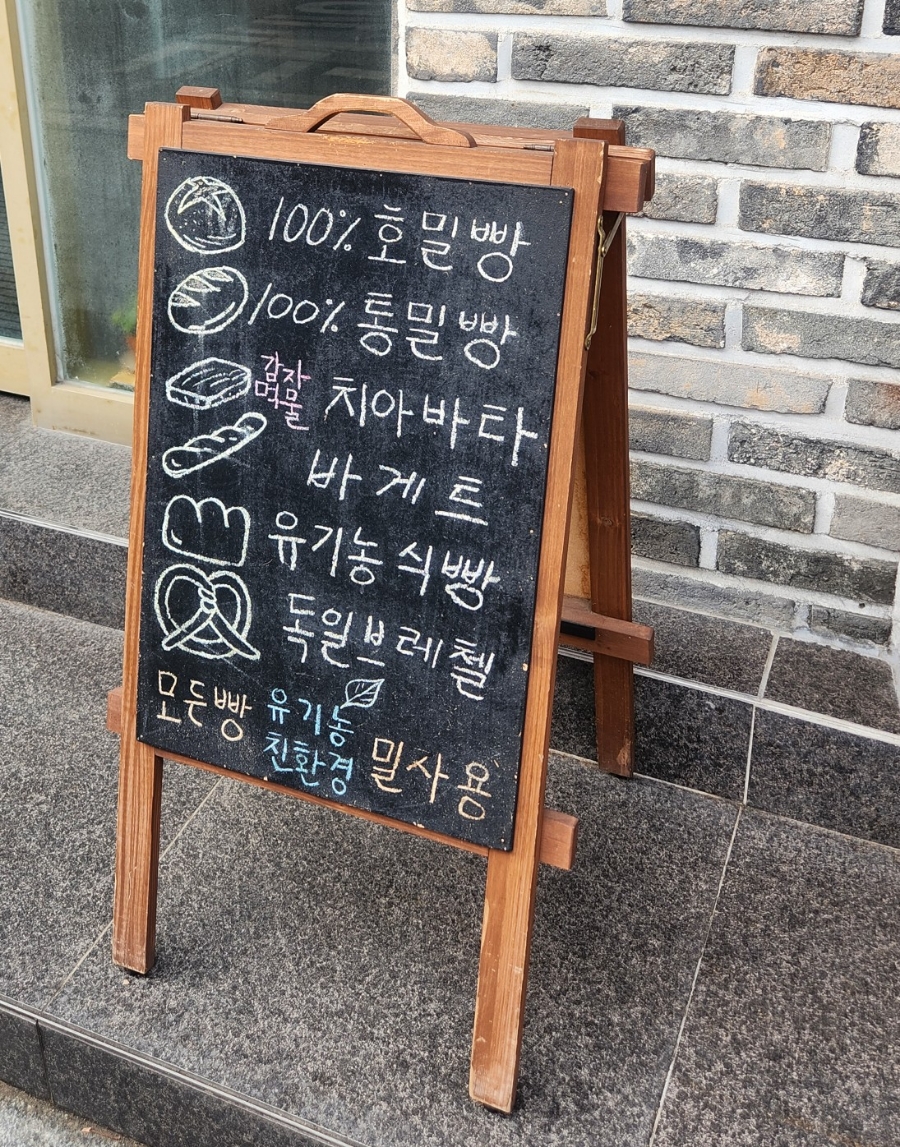 100% 호밀빵
100% 통밀빵
감자
먹물
치아바타
바게트
유기농 식빵
독일브레첼
모든빵 유기농 친환경 밀사용